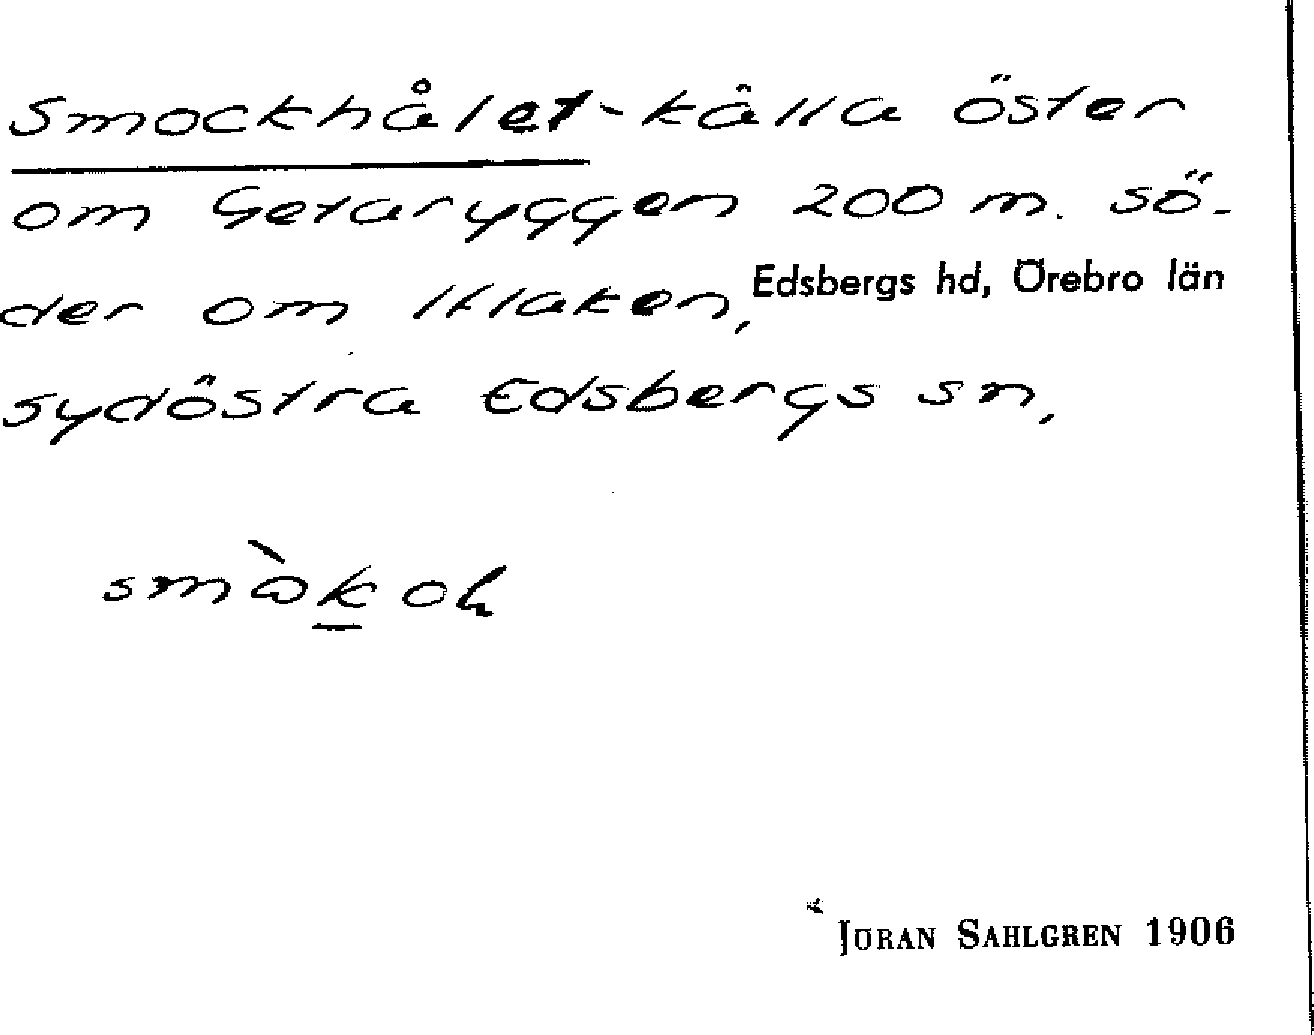 Smockhålet - källa öster
om Getaryggen 200 m. sö-
der om Flaken, Edsbergs hd, Örebro län
sydöstra Edsbergs sn,
JÖRAN SAHLGREN 1906